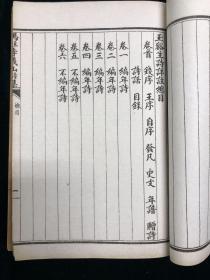 玉谿生詩詳註總目
卷首 錢序 王序 自序 發凡 史文 年譜 贈詩
詩話 目錄
卷一 編年詩
卷二 編年詩
卷三 編年詩
卷四 編年詩
卷五 不編年詩
卷六 不編年詩
總目
一